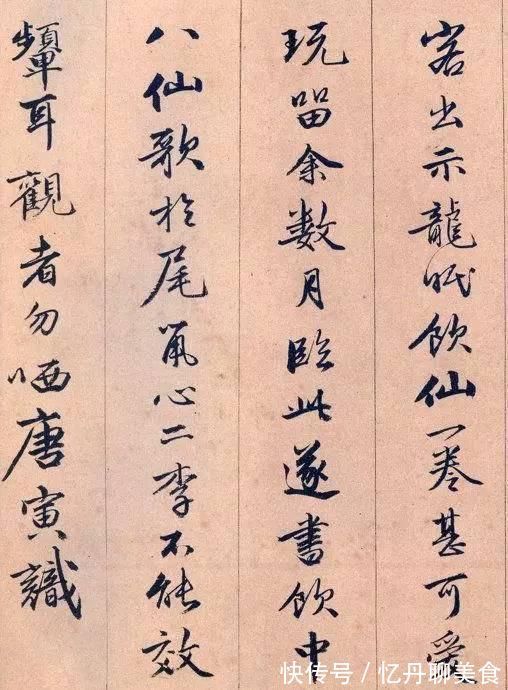 出示龍眠飲仙一卷甚可愛
玩留余数月臨此遂書飲中
八仙歌於尾心二李不能效
顰耳觀者勿哂唐寅識
快传号 / 忆丹聊美食